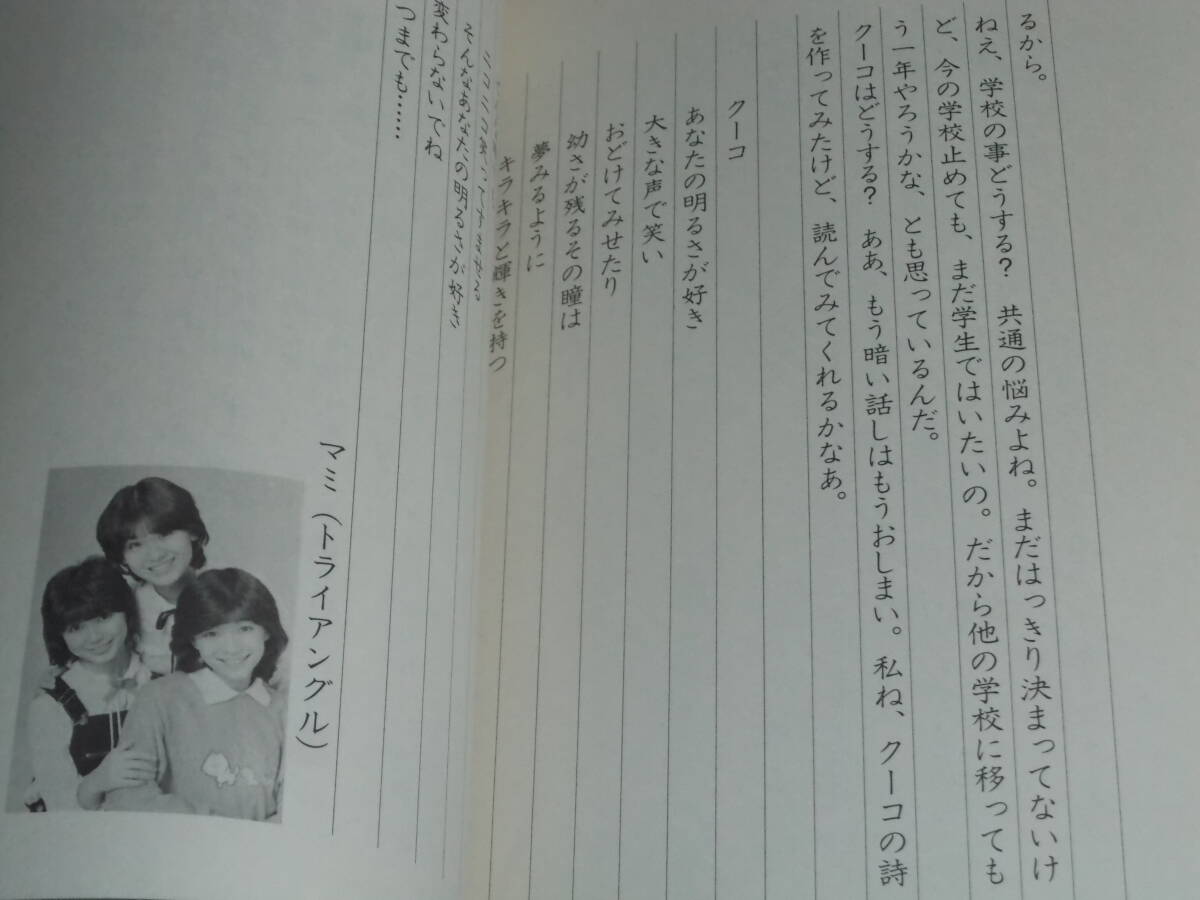 るから。
ねえ、学校の事どうする？　共通の悩みよね。まだはっきり決まってないけ
ど、今の学校止めても、まだ学生ではいたいの。だから他の学校に移っても
う一年やろうかな、とも思っているんだ。
クーコはどうする？　ああ、もう暗い話しはもうおしまい。私ね、クーコの詩
を作ってみたけど、読んでみてくれるかなあ。
クーコ
あなたの明るさが好き
大きな声で笑い
おどけてみせたり
幼さが残るその瞳は
夢みるように
キラキラと輝きを持つ
そんなあなたの明るさが好き
変わらないでね
つまでも……
マミ（トライアングル）